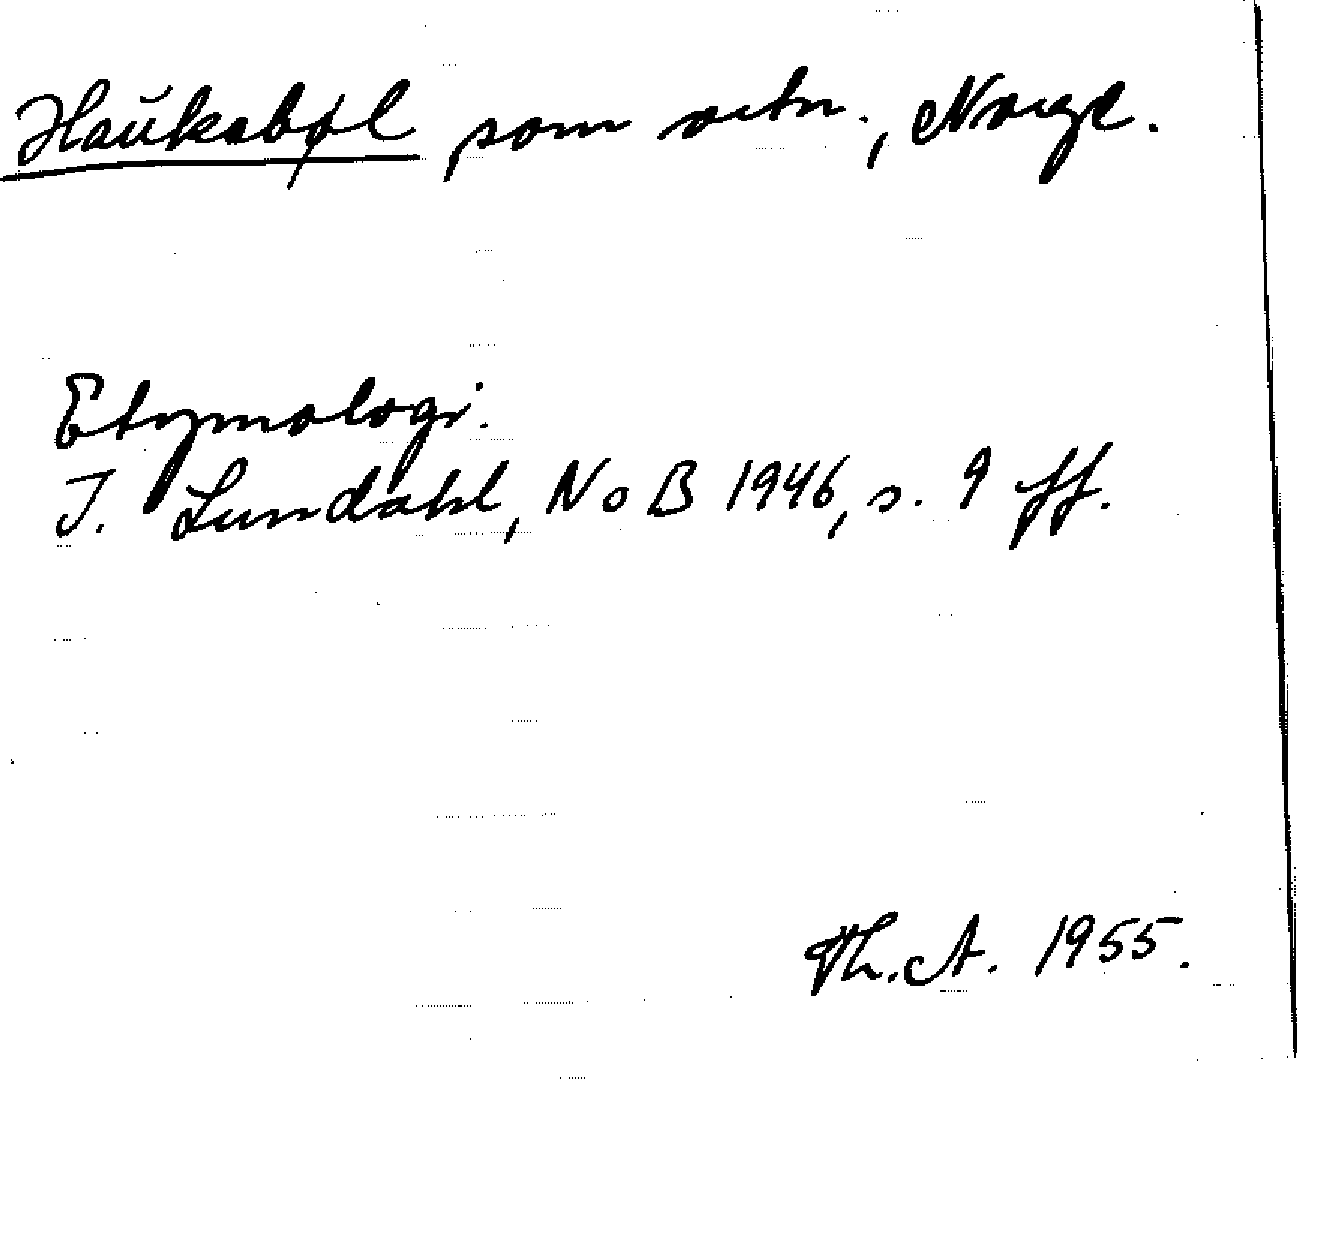 Haukabøl som ortn., Norge.
Etymologi.
I. Lundahl, NoB 1946, s. 9 ff.
Th. A. 1955.